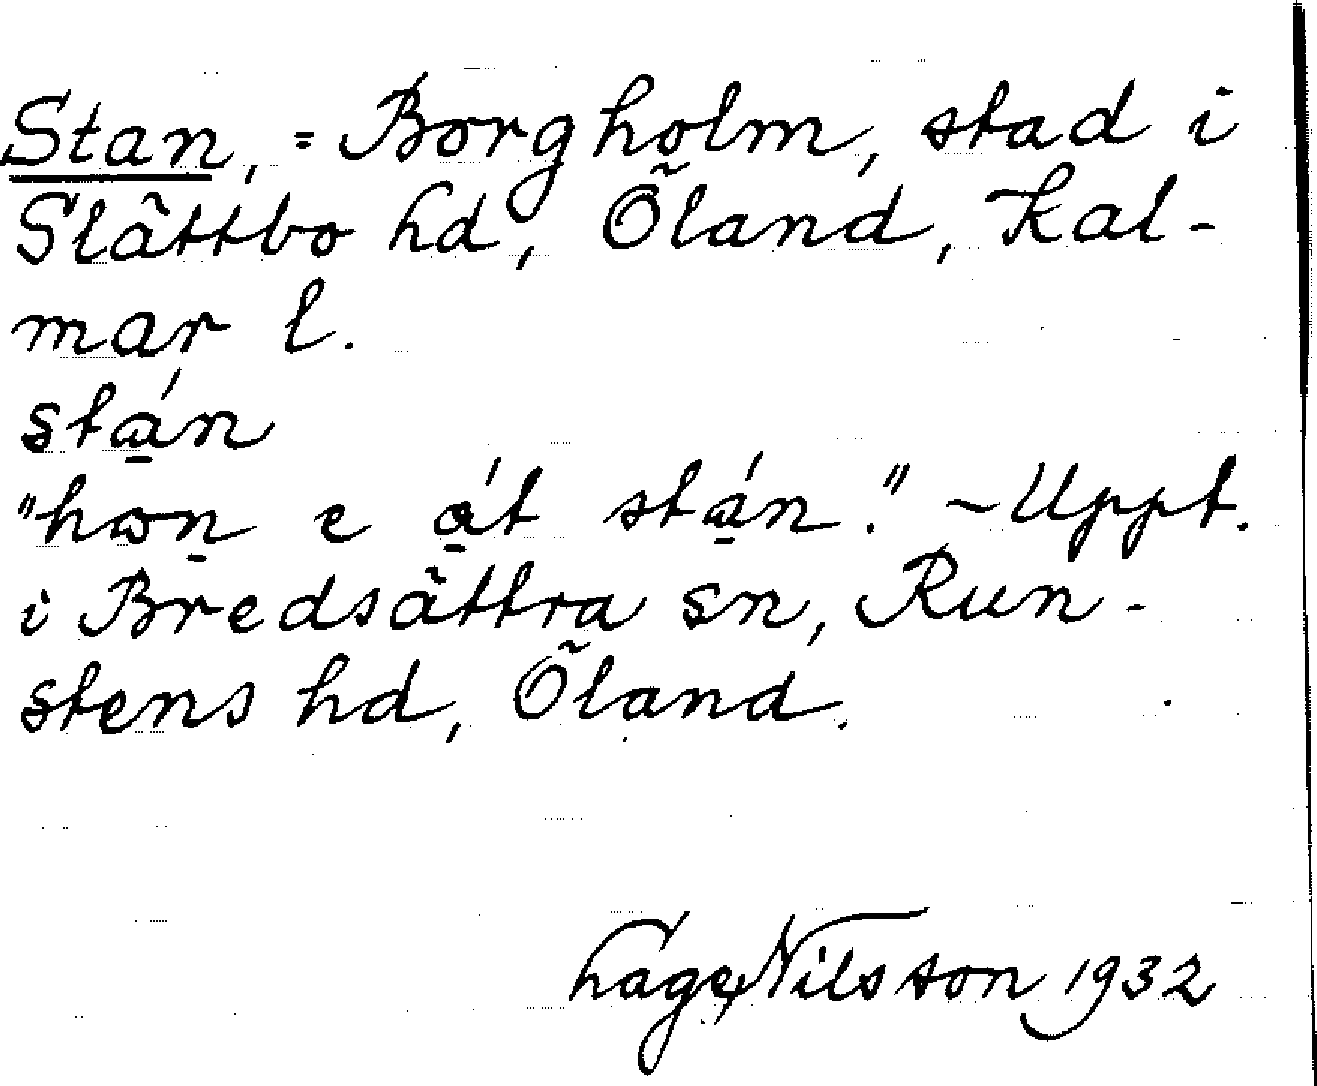 Stan, = Borgholm, stad i
Slättbo hd, Öland, Kal-
mar l.
stạ́n
"hon e ạ́t stạ́n." - Uppt.
i Bredsättra sn, Run-
stens hd, Öland.
Nilsson 1932